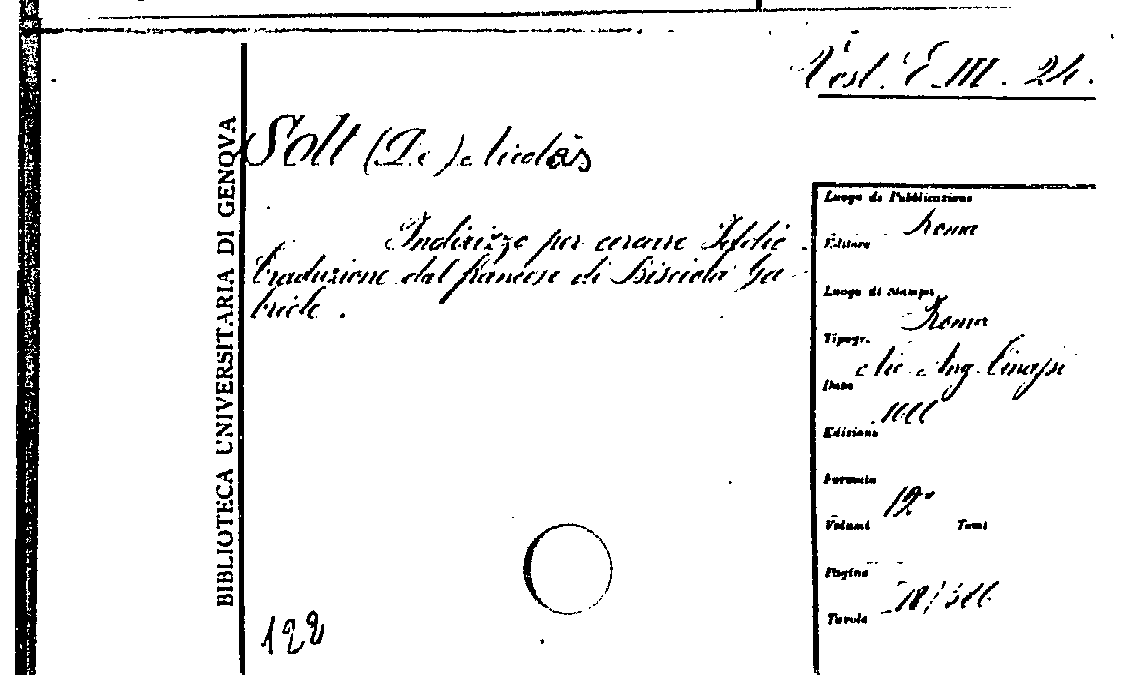 Vest. E. III. 24.
BIBLIOTECA UNIVERSITARIA DI GENOVA
Solt (De) Nicolàs
Indirizzo per cercare
traduzione dal francese di Bisciola Ga-
briele.
Luogo di Pubblicazione
Roma
Editore
Luogo di Stampa
Roma
Tipogr.
Nic. Ang. Tinassi
Data
Edizione
Formato
12°
Volumi Tomi
Pagine
Tavole
122